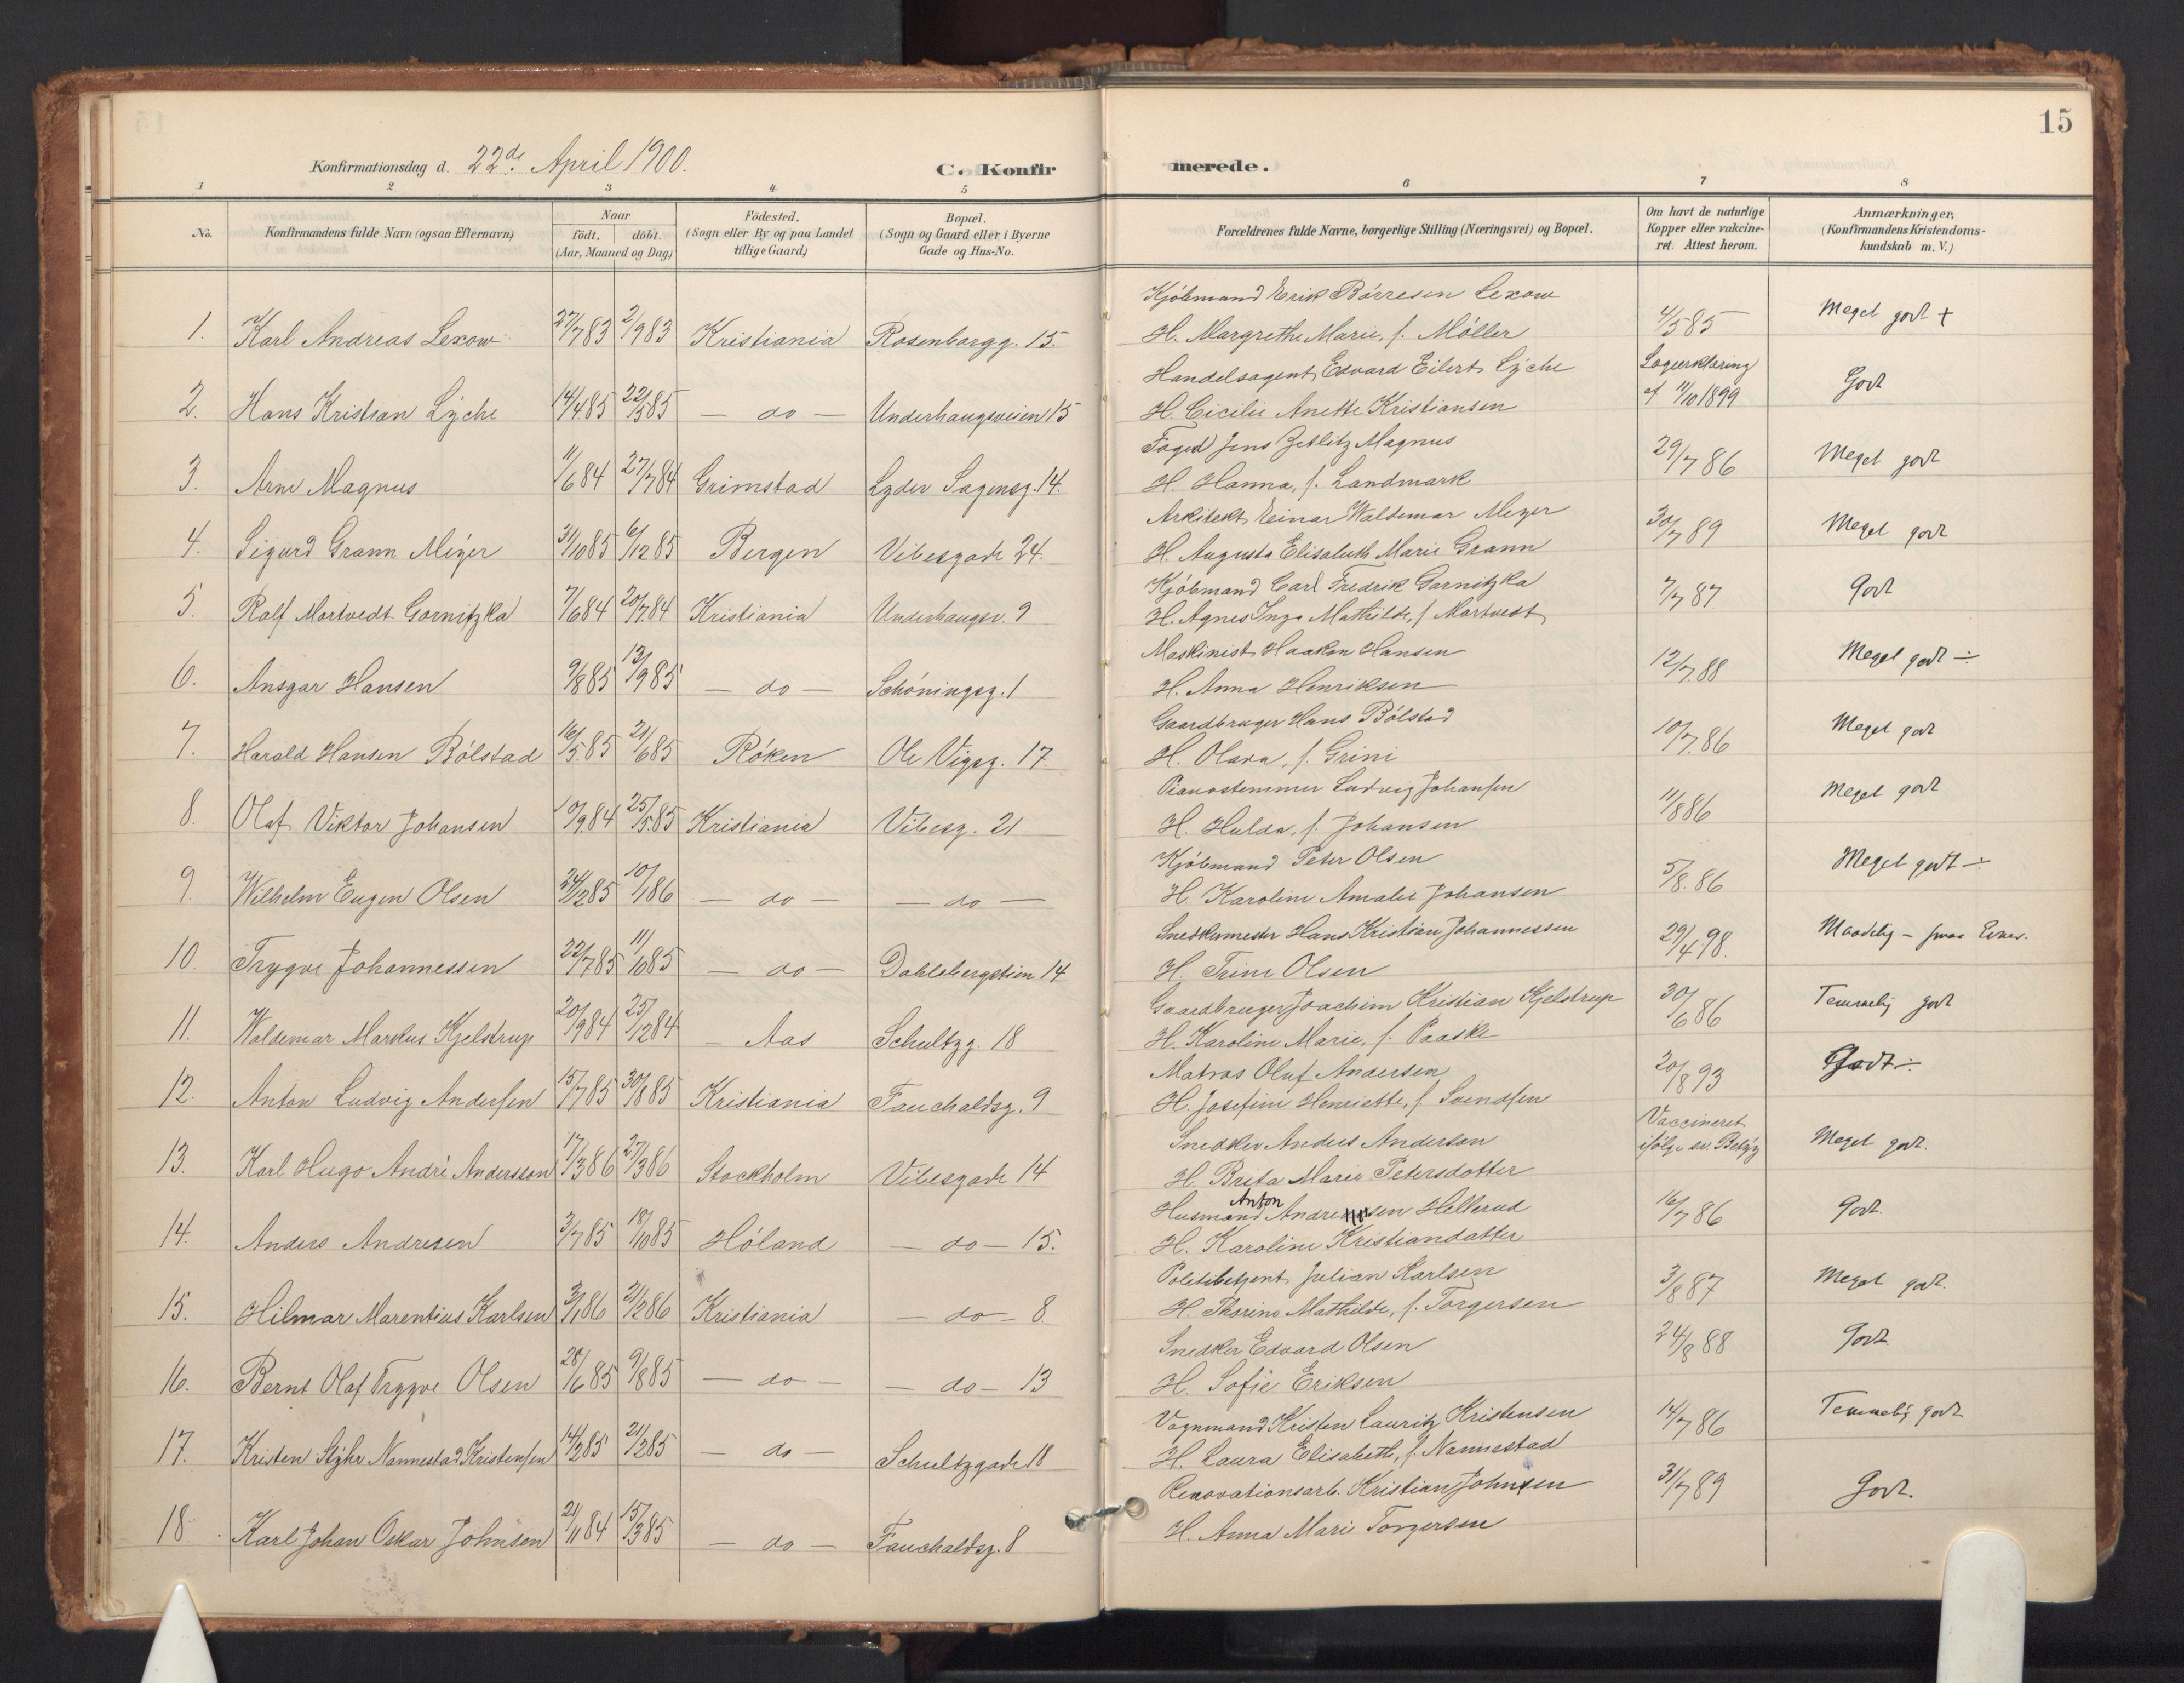 15
Konfirmationsdag d. 22de April 1900.
C. Konfirmerede.
1 2 3 4 5 6 7 8
No.
Konfirmandens fulde Navn (ogsaa Efternavn)
Naar
födt. döbt.
(Aar, Maaned og Dag)
Födested.
(Sogn eller By og paa Landet
tillige Gaard)
Bopæl.
(Sogn og Gaard eller i Byerne
Gade og Hus-No.
Forældrenes fulde Navne, borgerlige Stilling (Næringsvei) og Bopæl.
Om havt de naturlige
Kopper eller vakcine-
ret. Attest herom.
Anmærkninger,
(Konfirmandens Kristendoms-
kundskab m. V.)
Kjöbmand Erik Börresen Lexow
1. Karl Andreas Lexow 27/7 83 2/9 83 Kristiania Rosenborgg. 15. H. Margrethe Marie, f. Möller 4/5 85 Meget godt +
Handelsagent Edvard Eilert Lÿche Lægeerklæring
2. Hans Kristian Lÿche 14/4 85 22/5 85 — do — Underhaugsveien 15 H. Cicilie Anette Kristiansen af 11/10 1899 Godt
Foged Jens Zetlitz Magnus
3. Arne Magnus 11/6 84 27/7 84 Grimstad Lyder Sagensg. 14. H. Hanna, f. Landmark 29/7 86 Meget godt
Arkitekt Einar Waldemar Meyer
4. Sigurd Grann Meÿer 31/10 85 6/12 85 Bergen Vibesgade 24. H. Augusta Elisabeth Marie Grann 30/7 89 Meget godt
Kjöbmand Carl Fredrik Gornitzka
5. Ralf Mortvedt Gornitzka 7/6 84 20/7 84 Kristiania Underhaugsv. 9 H. Agnes Inga Mathilde, f. Mortvedt 7/7 87 Godt
Maskinist Haakon Hansen
6. Ansgar Hansen 9/8 85 13/9 85 — do — Schöningsg. 1 H. Anna Henriksen 12/7 88 Meget godt ÷
Gaardbruger Hans Bölstad
7. Harald Hansen Bölstad 16/5 85 21/6 85 Röken Ole Vigsg. 17. H. Olava, f. Grini 10/7 86 Meget godt
Pianostemmer Ludvig Johansen
8. Olaf Viktor Johansen 10/9 84 25/5 85 Kristiania Vibesg. 21 H. Hulda, f. Johansen 11/8 86 Meget godt
Kjöbmand Peter Olsen
9. Wilhelm Eugen Olsen 24/12 85 10/1 86 — do — — do — H. Karoline Amalie Johansen 5/8 86 Meget godt ÷
Snedkermester Hans Kristian Johannessen
10. Trygve Johannessen 22/7 85 11/10 85 — do — Dahlsbergstien 14 H. Trine Olsen 29/4 98. Maadelig –
Gaardbruger Joachim Kristian Kjelstrup
11. Waldemar Markus Kjelstrup 20/9 84 25/12 84 – Aas Schultzg. 18 H. Karoline Marie, f. Paaske 30/6 86 Temmelig godt
Matros Oluf Andersen
12. Anton Ludvig Andersen 15/7 85 30/8 85 Kristiania Fauchaldsg. 9 H. Josefine Henriette, f. Svendsen 20/8 93 Godt ÷
Snedker Anders Anderson Vaccineret
13. Karl Hugo André Andersson 17/3 86 27/3 86 Stockholm Vibesgade 14 H. Brita Maria Petersdotter ifölge sv. Betÿg Meget godt.
Husmand Anton Andreassen Hellerud
14. Anders Andresen 3/7 85 18/10 85 Höland — do — 15. H. Karoline Kristiandatter 16/7 86 Godt.
Politibetjent Julian Karlsen
15. Hilmar Marentius Karlsen 3/1 86 21/2 86 Kristiania — do — 8. H. Thorine Mathilde, f. Torgersen 3/8 87 Meget godt.
Snedker Edvard Olsen
16. Bernt Olaf Trygve Olsen 28/6 85 9/8 85 — do — — do — 13 H. Sofie Eriksen 24/8 88 Godt.
Vognmand Kristen Lauritz Kristensen
17. Kristen Stÿhr Nannestad Kristensen 14/2 85 21/2 85 — do — Schultzgade 18 H. Laura Elisabeth, f. Nannestad 14/7 86 Temmelig godt
Renovationsarb. Kristian Johnsen
18. Karl Johan Oskar Johnsen 21/11 84 15/3 85 — do — Fauchaldsg. 8 H. Anna Marie Torgersen 31/7 89 Godt.